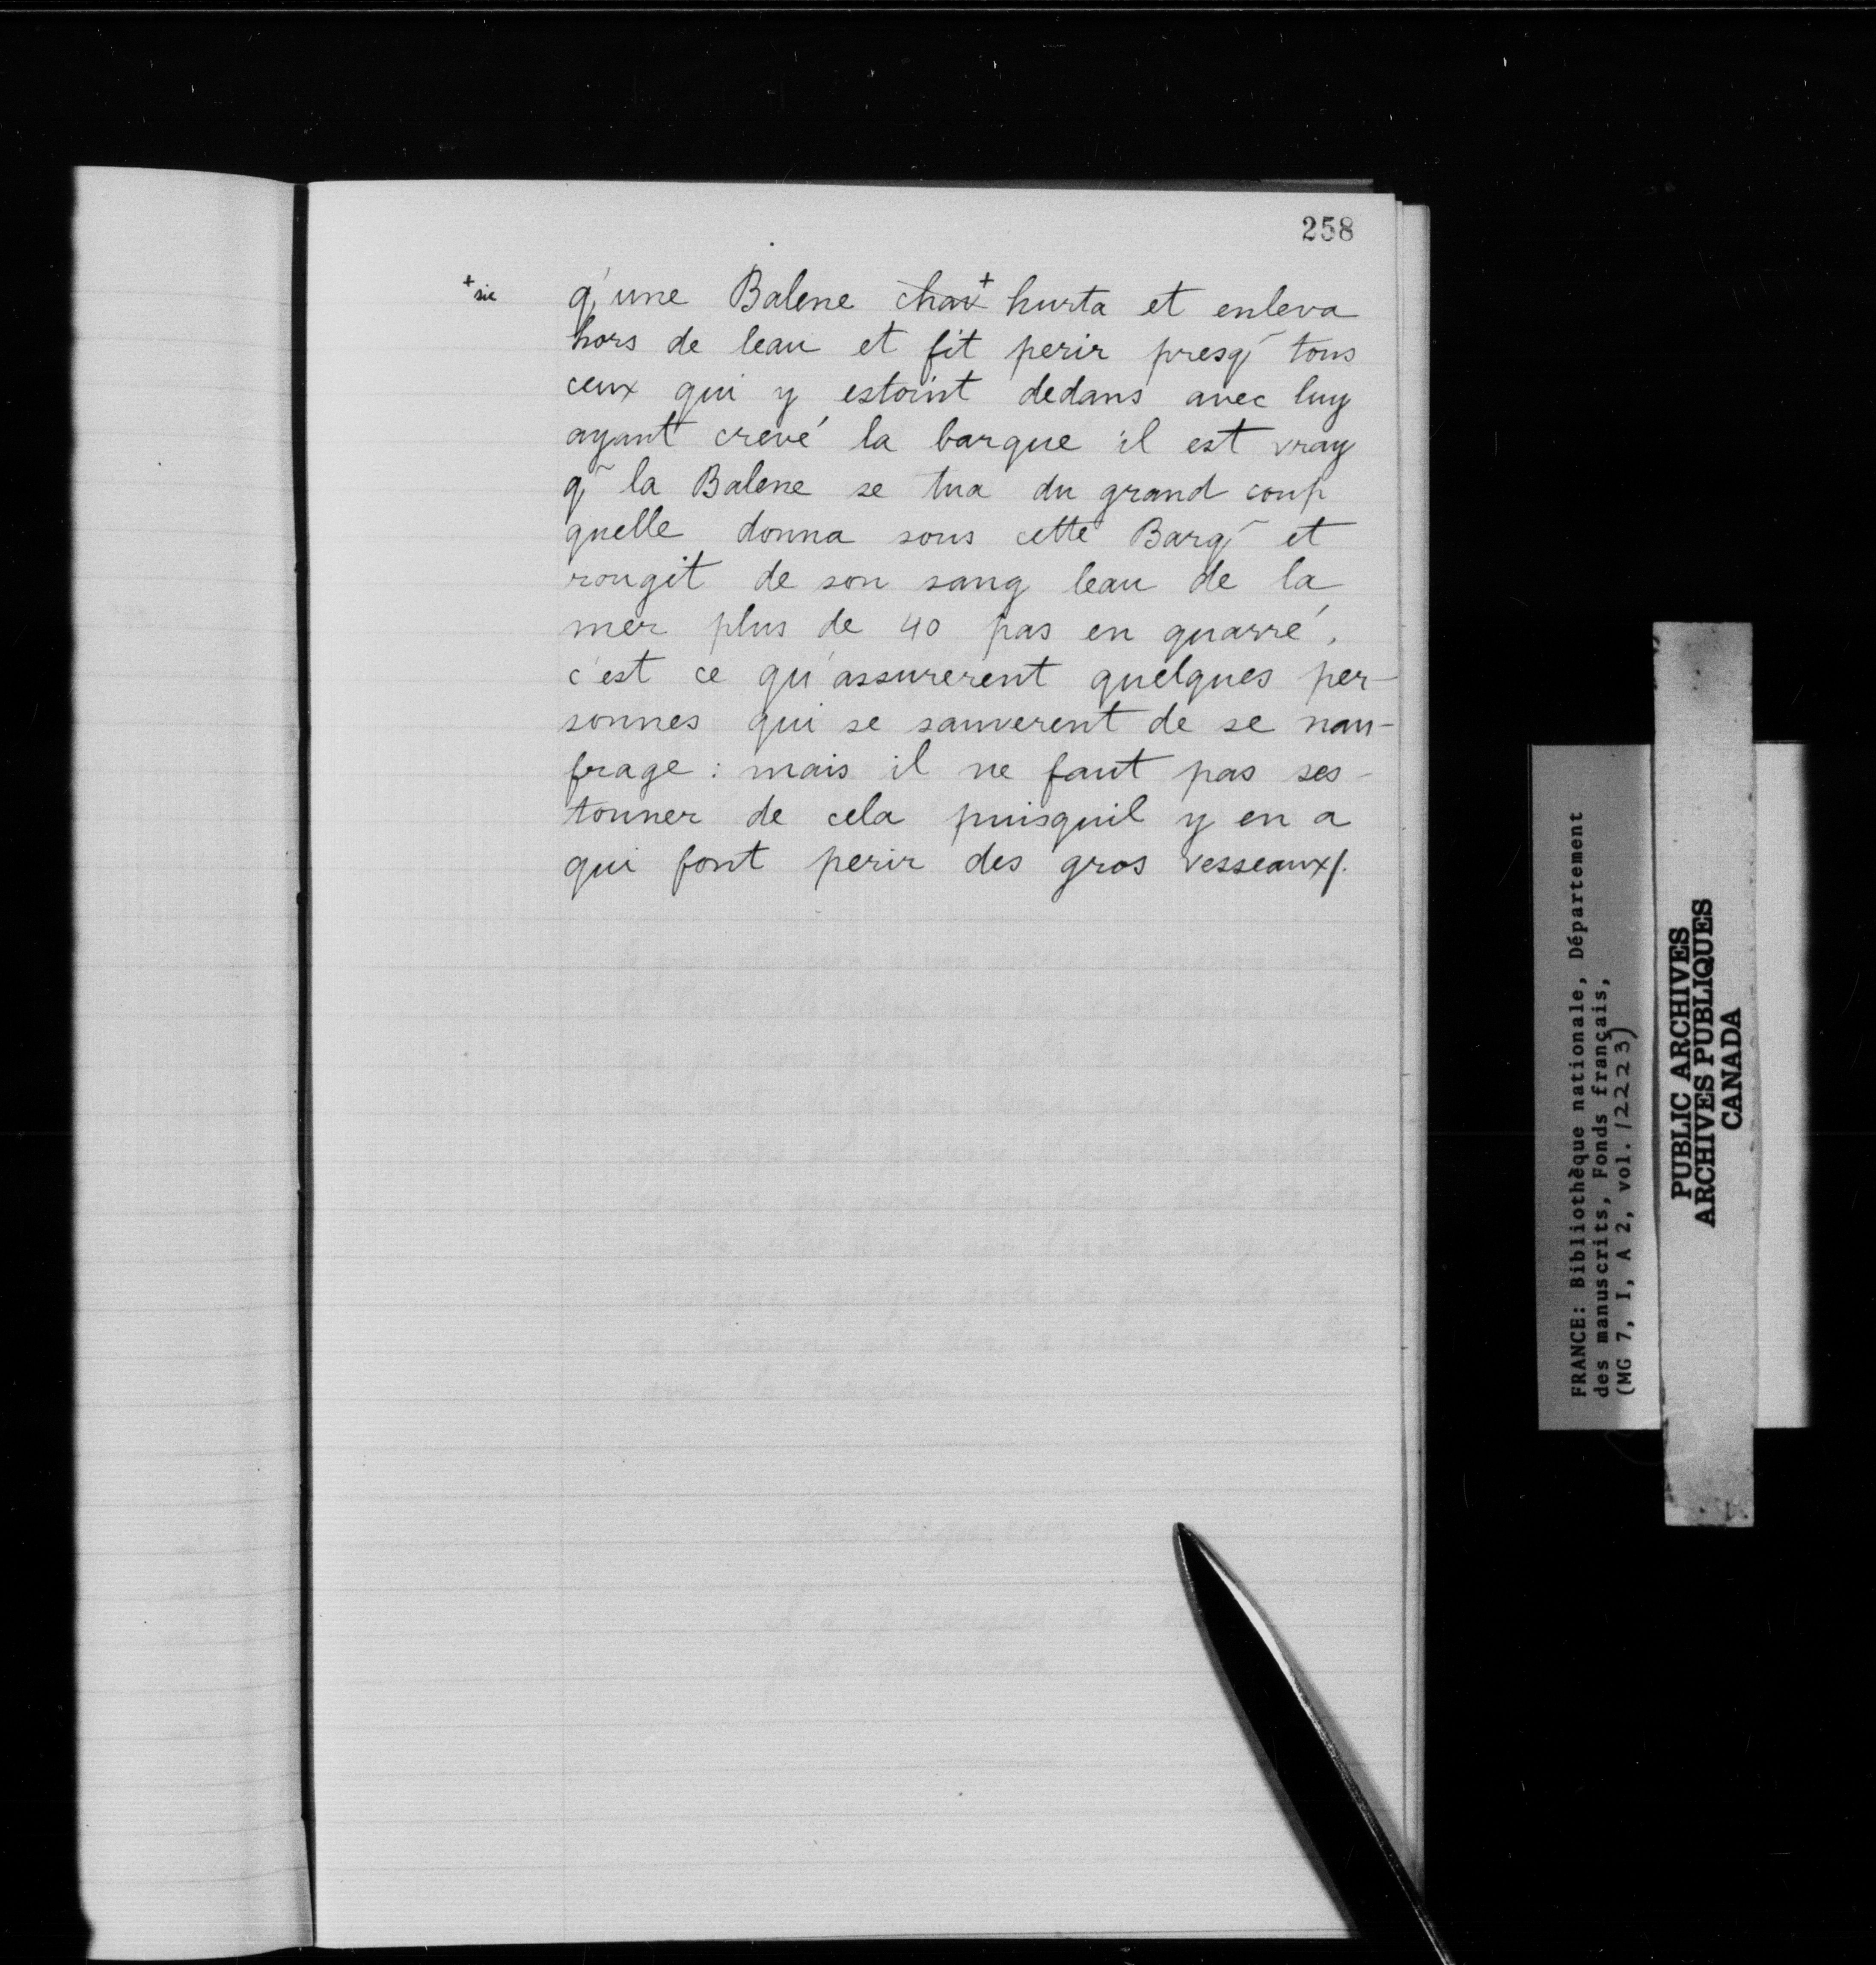 258
+ sic
q'une Balene chav+ hurta et enleva
hors de leau et fit perir presq̃ tous
ceux qui y estoint dedans avec luy
ayant crevé la barque il est vray
q̃ la Balene se tua du grand coup
quelle donna sous cette Barq̃ et
rougit de son sang leau de la
mer plus de 40 pas en quarré,
c'est ce qu'assurerent quelques per-
sonnes qui se sauverent de se nau-
frage : mais il ne faut pas ses-
tonner de cela puisquil y en a
qui font perir des gros vesseaux/.
FRANCE: Bibliothèque nationale, Département
des manuscrits, Fonds français,
(MG 7, I, A 2, vol. 12223)
PUBLIC ARCHIVES
ARCHIVES PUBLIQUES
CANADA